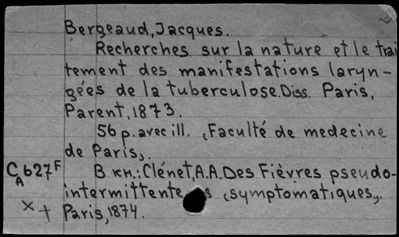 Bergeaud, Jacques.
Recherches sur la nature et le trai
tement des manifestations laryn-
gées de la tuberculose. Diss. Paris,
Parent, 1873.
56 p. avec ill. (Faculté de medecine
de Paris).
C 627 F В кн.: Clénet, A.A. Des Fièvres pseudo-
A intermittentes (symptomatiques).
× † Paris, 1874.